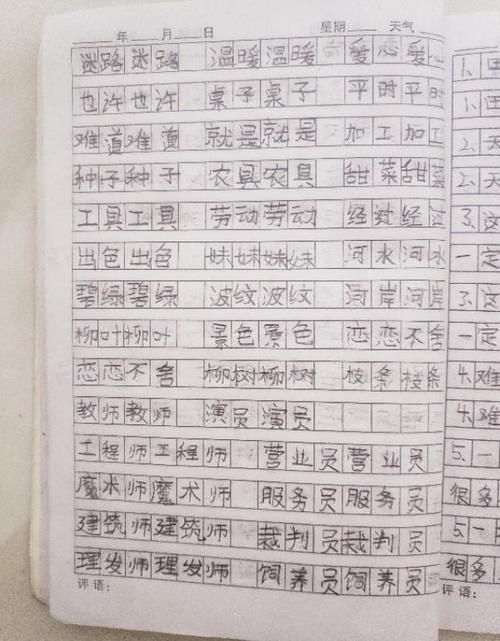 年 月 日 星期 天气
迷路迷路 温暖温暖 爱心爱心
也许也许 桌子桌子 平时平时
难道难道 就是就是 加工加工
种子种子 农具农具 甜菜甜菜
工具工具 劳动劳动 经过经过
出色出色 妹妹妹妹 河水河水
碧绿碧绿 波纹波纹 河岸河岸
柳叶柳叶 景色景色 恋恋不舍
恋恋不舍 柳树柳树 枝条枝条
教师教师 演员演员
工程师工程师 营业员营业员
魔术师魔术师 服务员服务员
建筑师建筑师 裁判员裁判员
理发师理发师 饲养员饲养员
评语：
1.
1.
2.
2.
3.这
一定
3.这
一定
4.难
4.难
5.一
很多
5.一
很多